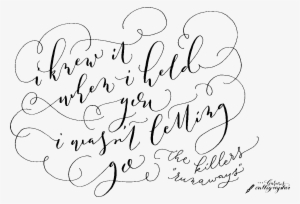 i knew it
when i held
you
i wasn't letting
go
the killers
"runaways"
calligraphy